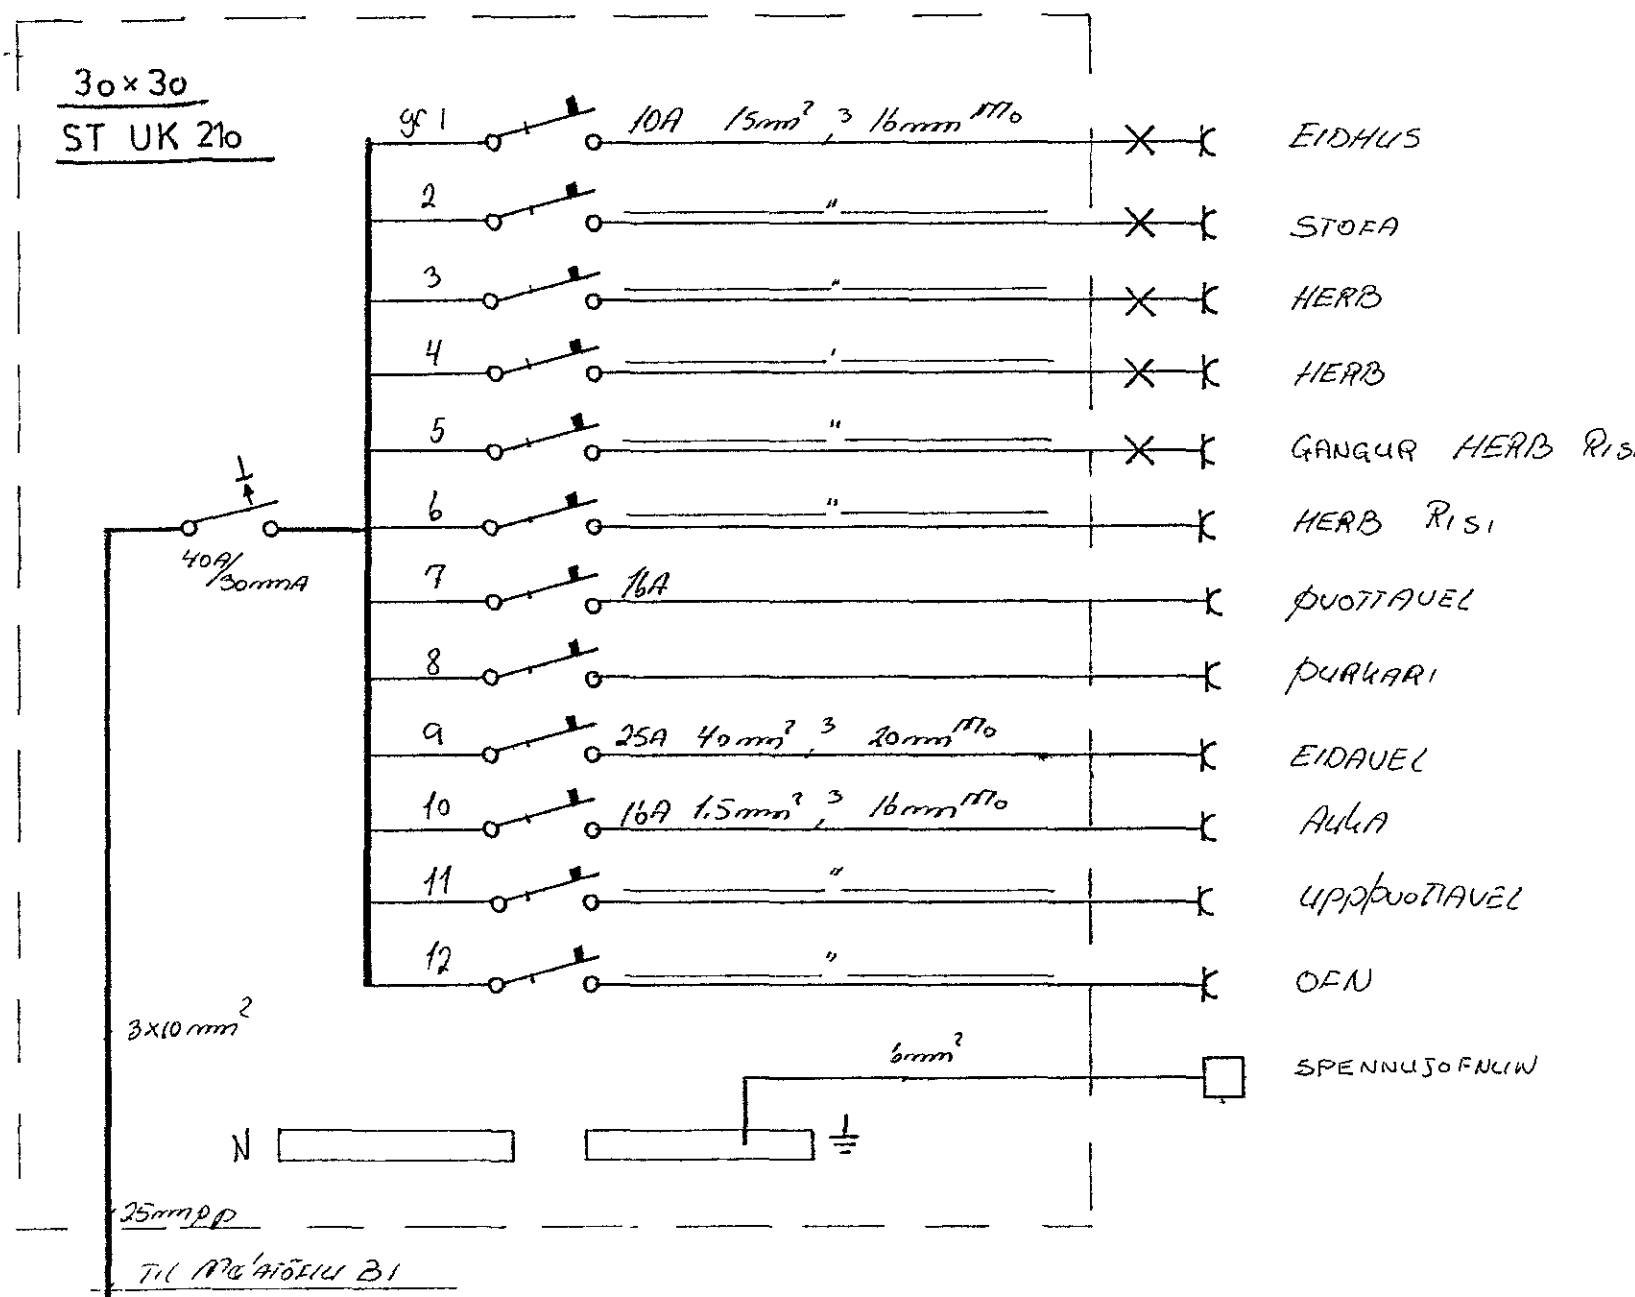 30 × 30
ST UK 210
gr 1 10A 15mm² , 3 16mm Mo EIDHUS
2 " STOFA
3 " HERB
4 ' HERB
5 " GANGUR HERB RIS
6 " HERB RISI
7 16A ÞVOTTAVEL
8 ÞURKARI
40A/30mmA
9 25A 40mm² , 3 20mm Mo EIDAVEL
10 16A 1.5mm² , 3 16mm Mo AUKA
11 " UPPÞVOTTAVEL
12 " OFN
3x10mm²
6mm² SPENNUJOFNUN
N
25mm pp
TIL B1